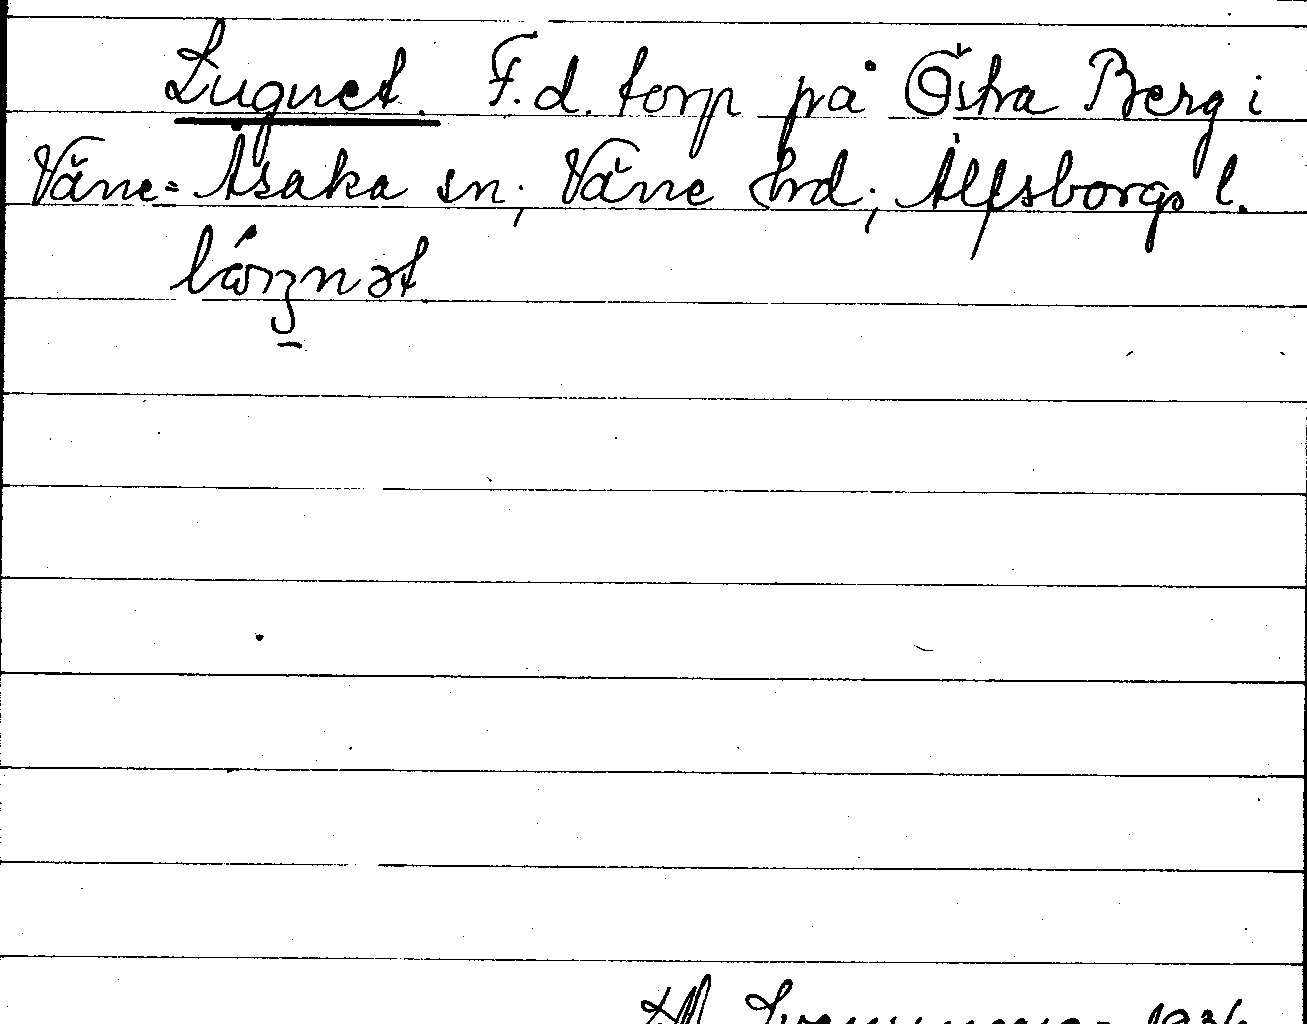 Lugnet. F.d. torp på Östra Berg i
Väne-Åsaka sn; Väne hrd; Älfsborgs l.